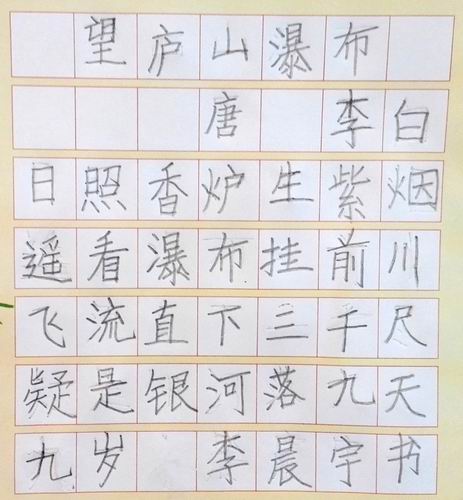 望庐山瀑布
唐 李白
日照香炉生紫烟
遥看瀑布挂前川
飞流直下三千尺
疑是银河落九天
九岁 李晨宇书